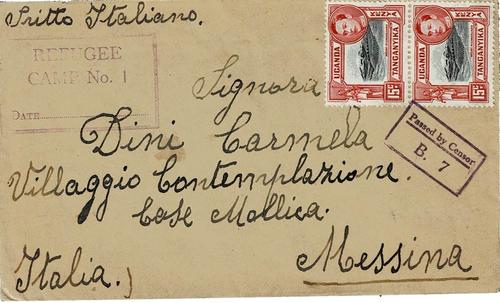 Scritto Italiano.
REFUGEE
CAMP No. 1
DATE
KENYA
UGANDA
TANGANYIKA
15c
KENYA
UGANDA
TANGANYIKA
15c
Signora
Passed by Censor
B. 7
Dini Carmela
Villaggio Contemplazione.
Case Mollica.
Messina
Italia.)